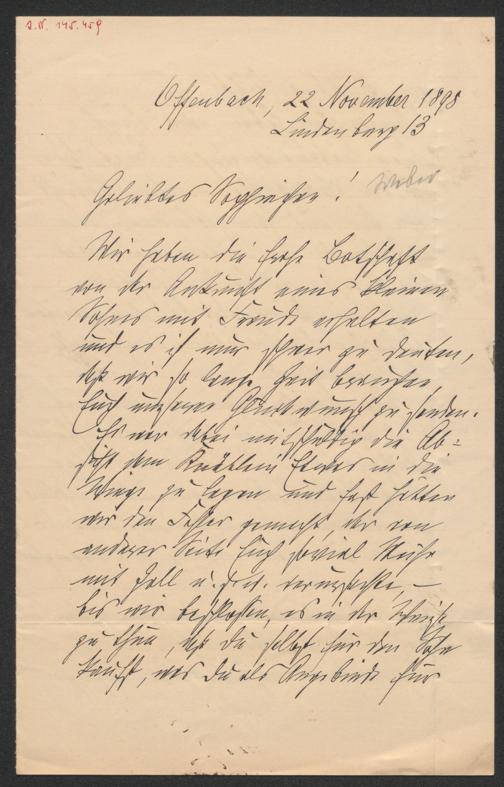 I.N. 145.459
Offenbach, 22 November 1898
Lindenberg 13
Geliebtes Sophiechen!
Wir haben die frohe Botschaft
von der Ankunft eines kleinen
Sohnes mit Freude erhalten
und es ist nur schwer zu deuten,
daß wir so lange Zeit brauchten,
Euch unseren Glückwunsch zu senden.
Es war dabei mitschuldig die Ab=
sicht dem Knäblein Etwas in die
Wiege zu legen und fast hätten
wir den Fehler gemacht, der von
anderer Seite Euch soviel Mühe
mit Zoll u. verursachte, –
bis wir beschlossen, es in der Weise
zu thun, daß Du selbst für den Sohn
kaufst, was Du als Angebinde für